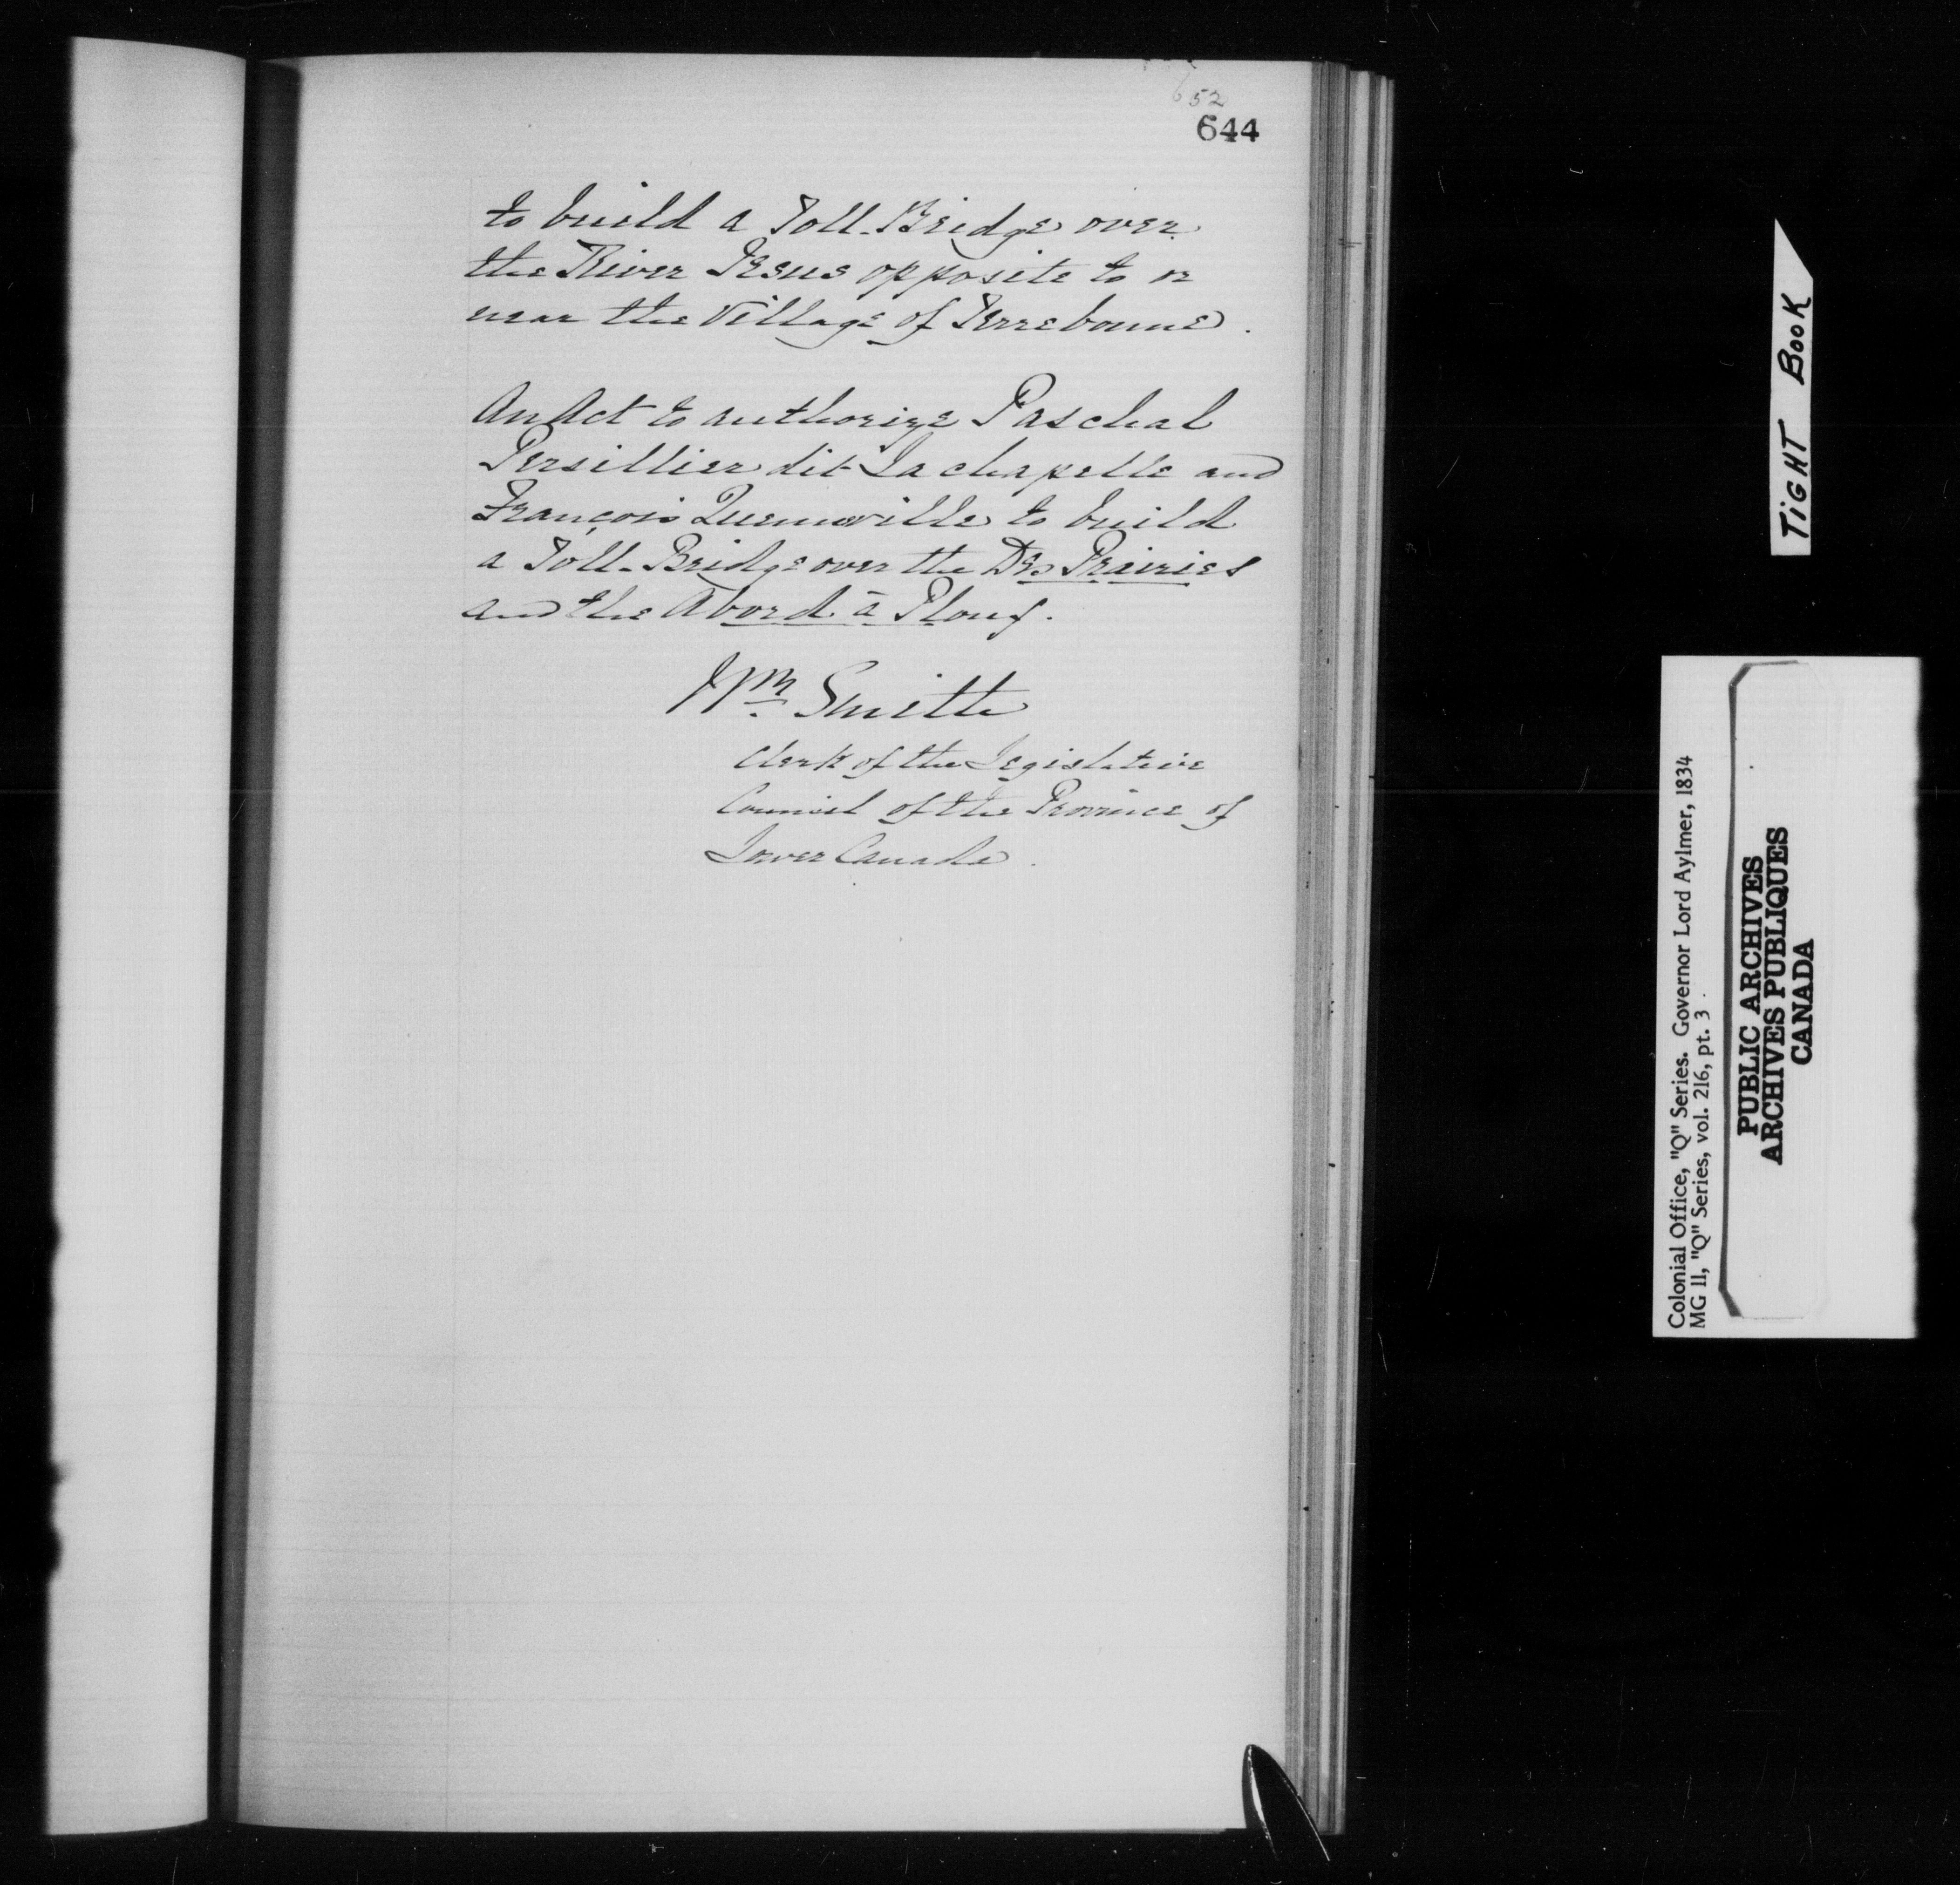 652
644
to build a Toll-Bridge over
the River Jesus opposite to or
near the Village of Terrebonne.
An Act to authorize Paschal
Persillier dit Lachapelle and
François Quenneville to build
a Toll-Bridge over the Des Prairies
and the Abord à Plouf.
Wm Smith
Clerk of the Legislative
Council of the Province of
Lower Canada.
TIGHT BOOK
Colonial Office, "Q" Series. Governor Lord Aylmer, 1834
MG 11, "Q" Series, vol. 216, pt. 3
PUBLIC ARCHIVES
ARCHIVES PUBLIQUES
CANADA